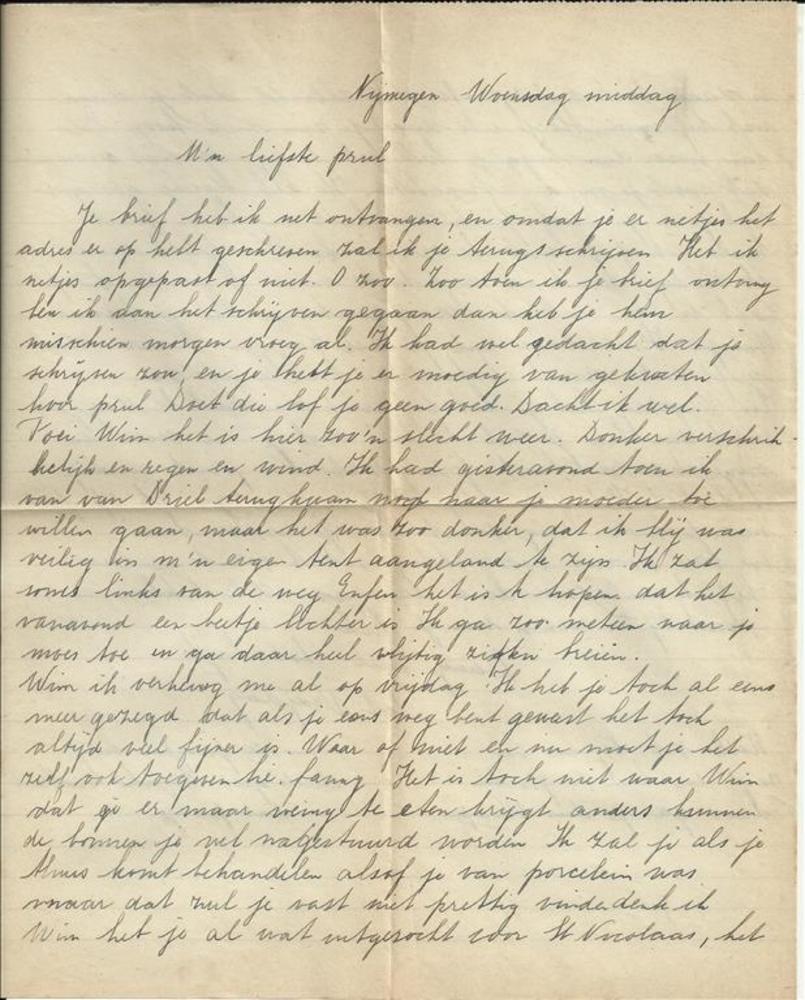 Nijmegen Woensdag middag
M'n liefste prul
Je brief heb ik net ontvangen, en omdat je er netjes het
adres er op hebt geschreven zal ik je terugschrijven Heb ik
netjes opgepast of niet. O zoo. Zoo toen ik je brief ontving
ben ik aan het schrijven gegaan dan heb je hem
misschien morgen vroeg al. Ik had wel gedacht dat je
schrijven zou, en je hebt je er moedig van gekweten
hoor prul Doet die lof je geen goed. Dacht ik wel.
Wim het is hier zoo'n slecht weer. Donker verschrik-
kelijk en regen en wind. Ik had gisteravond toen ik
van van Driel terugkwam nog naar je moeder toe
willen gaan, maar het was zoo donker, dat ik blij was
veilig in m'n eigen tent aangeland te zijn. Ik zat
soms links van de weg Enfin het is te hopen dat het
vanavond een beetje lichter is Ik ga zoo meteen naar je
moes toe en ga daar heel vlijtig zitten breien.
Wim ik verheug me al op vrijdag. Ik heb je toch al eens
meer gezegd dat als je eens weg bent geweest het toch
altijd veel fijner is. Waar of niet en nu moet je het
zelf ook toegeven hè. fanny Het is toch niet waar Wim
dat ge er maar weinig te eten krijgt anders kunnen
de bonnen je wel nagestuurd worden Ik zal je als je
thuis komt behandelen alsof je van porcelein was
maar dat zul je vast niet prettig vinden denk ik
Wim heb je al wat uitgezocht voor St Nicolaas, het